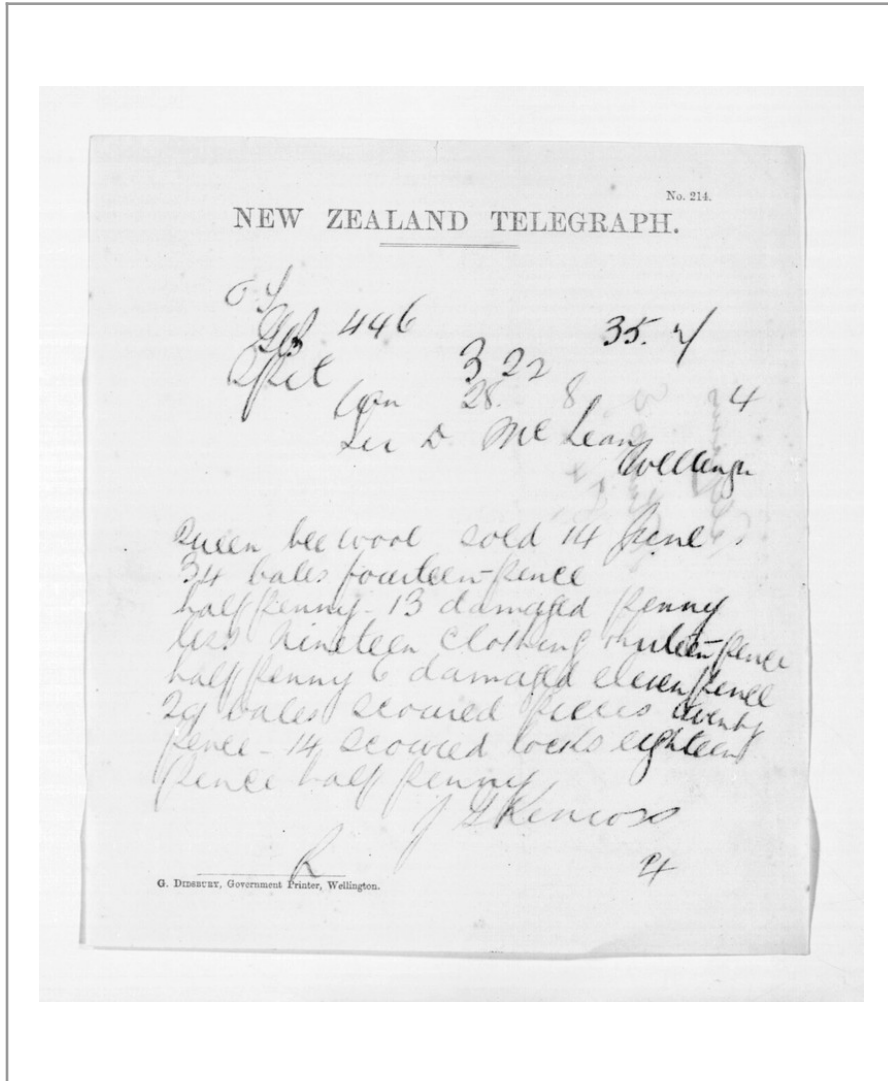 No. 214.
NEW ZEALAND TELEGRAPH.
446 35.
Spit 322
28. 8 4
Sir D McLean
Wellingn
Queen bee wool sold 14 June
34 bales fourteen-pence
halfpenny - 13 damaged penny
less Nineteen Clothing pence
halfpenny 6 damaged elevenpence
29 bales scoured pieces twenty
pence - 14 scoured locks eighteen
pence half penny
J G Kinross
R
G. DIDSBURY, Government Printer, Wellington.